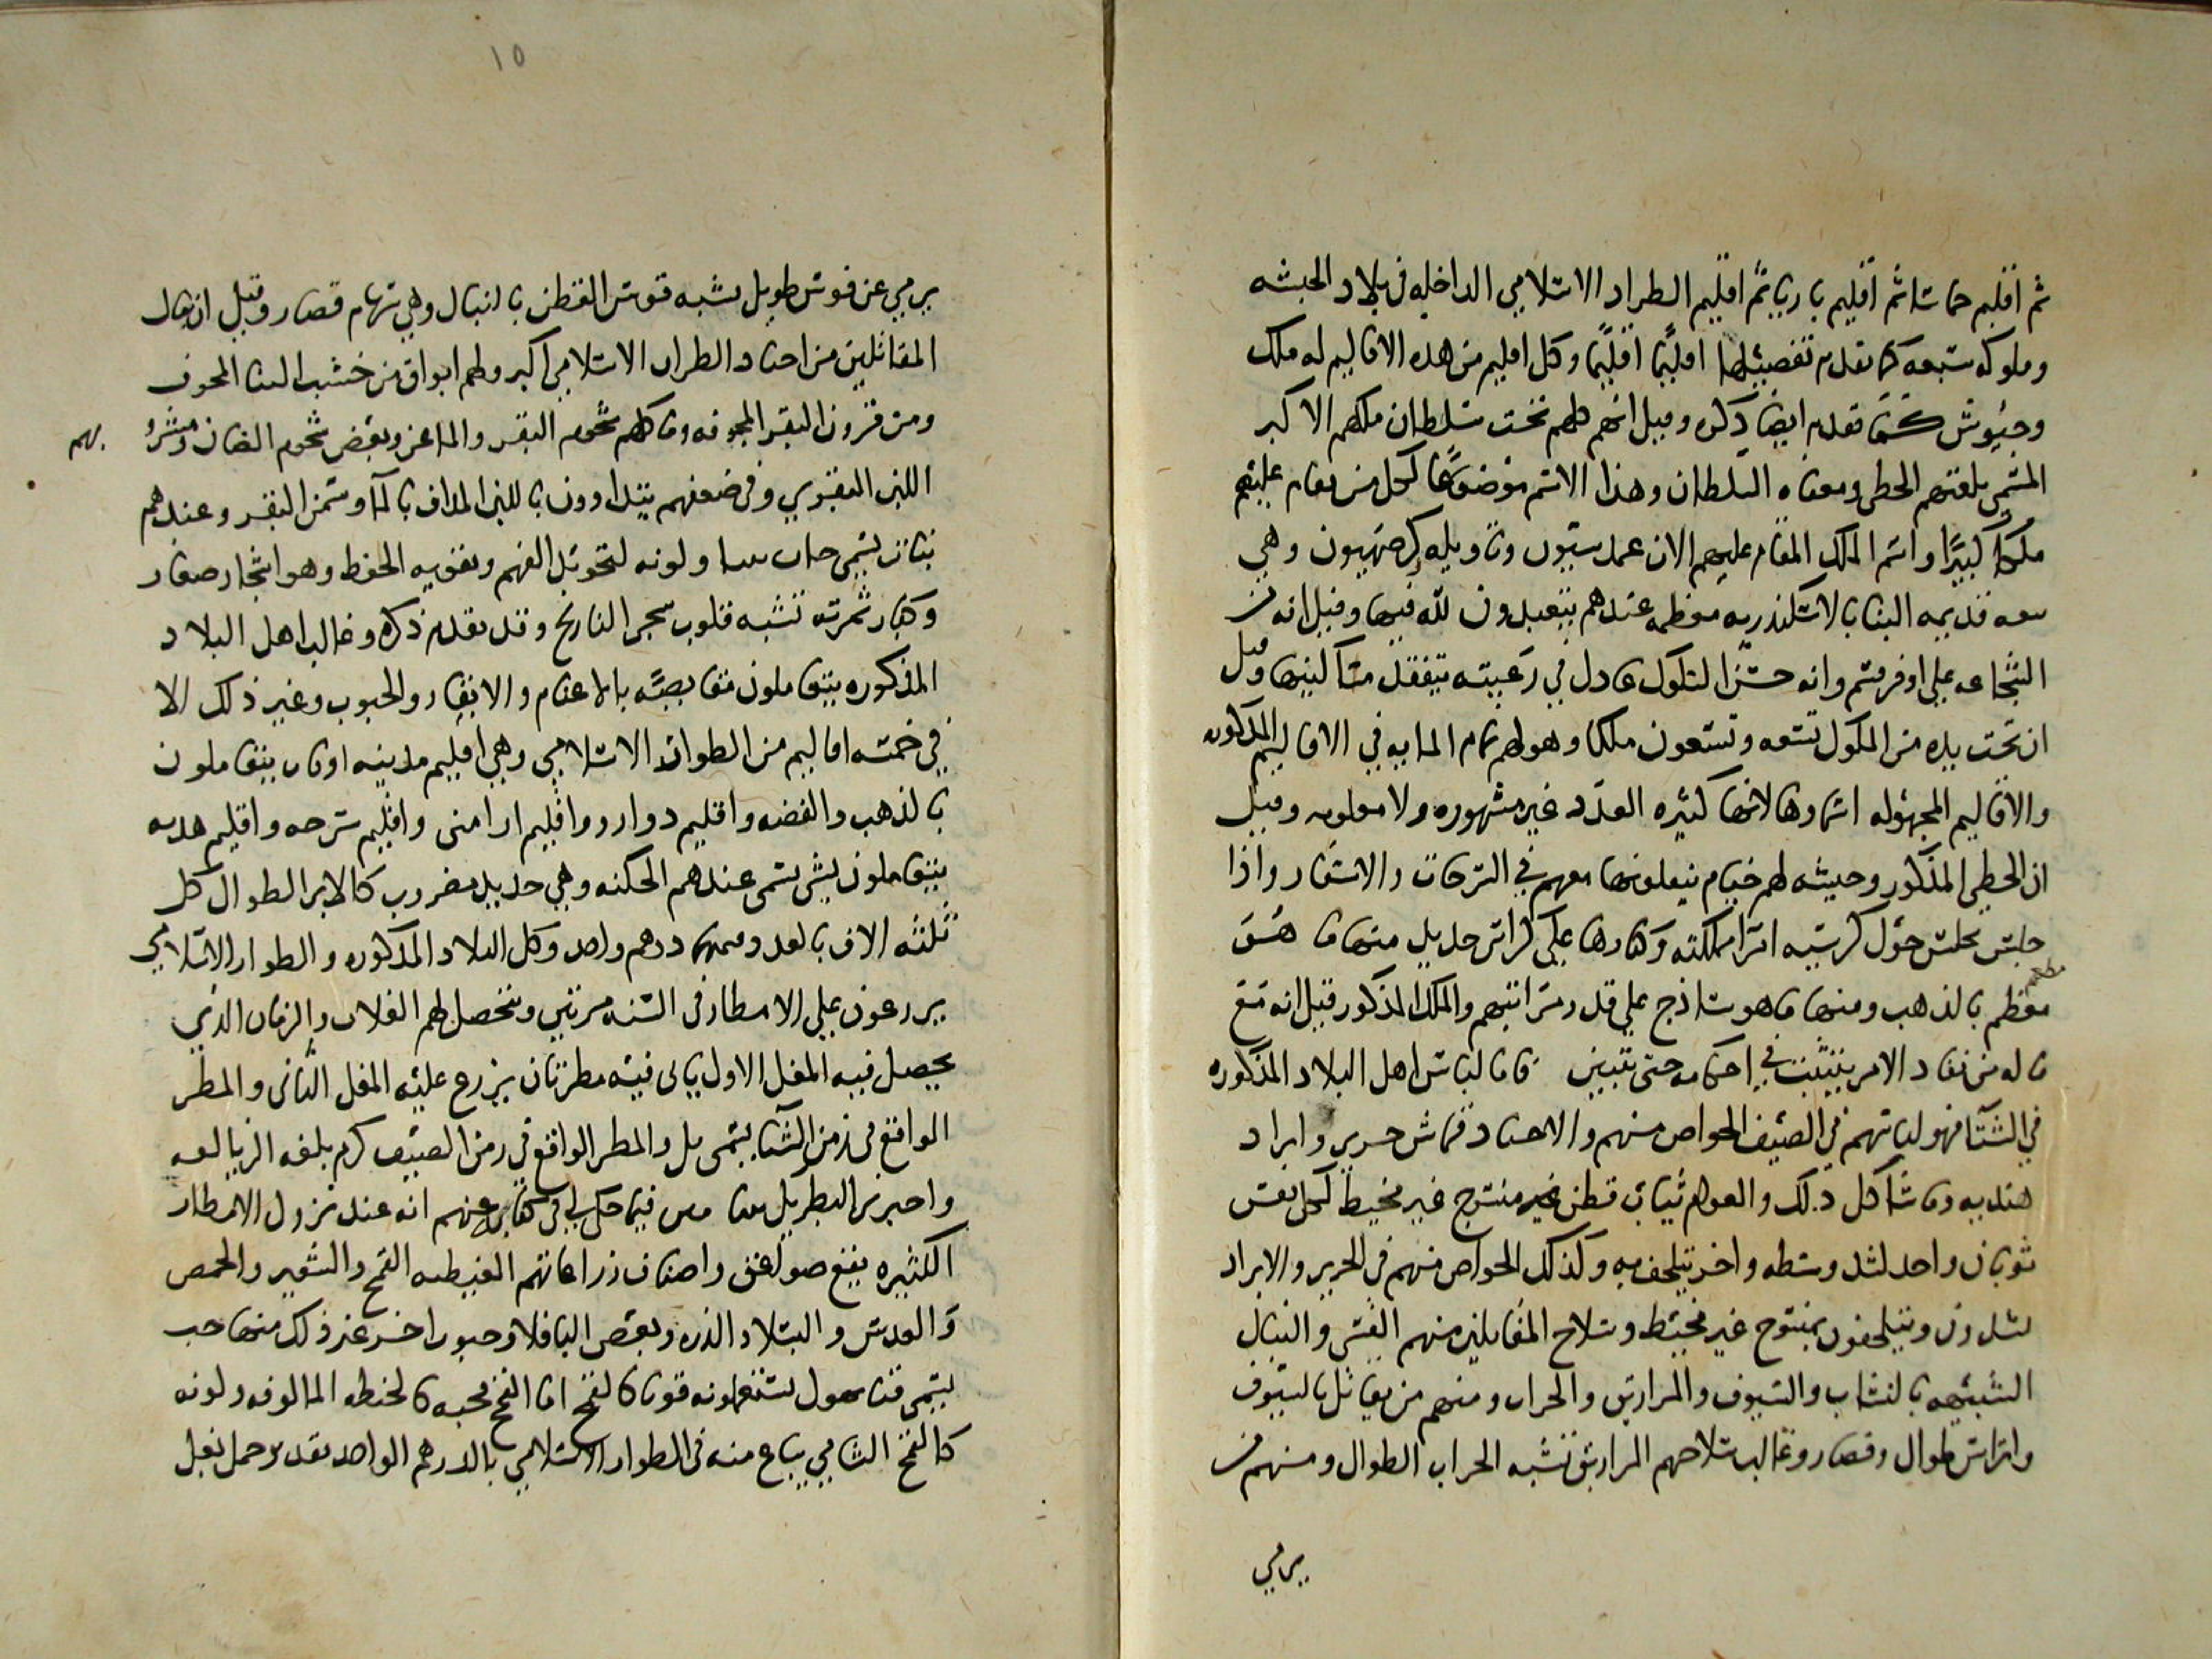 ثم اقليم حماسا ثم اقليم باريا ثم اقليم الطراز الاسلامي الداخله في بلاد الحبشه
وملوكه سبعه كما تقدم تفصيلها اقليمًا اقليمًا وكل اقليم من هذه الاقاليم له ملك
وجيوش كما تقدم ايضا ذكره وقيل انهم كلهم تحت سلطان ملكهم الاكبر
المسمى بلغتهم الحطى ومعناه السلطان وهذا الاسم موضوعًا لكل من يقام عليهم
ملكا كبيرًا واسم الملك المقام عليهم الان عمد سيون وتاويله صهيون وهي
بيعه قديمه البنا بالاسكندريه معظمه عندهم يتعبدون لله فيها وقيل انه من
الشجاعه على اوفر قسم وانه حسن السلوك عادل في رعيته يتفقد مساكينها وقيل
ان تحت يده من الملوك تسعه وتسعون ملكا وهو لهم تمام المايه في الاقاليم المذكوره
والاقاليم المجهوله اسماوها لانها كثيره العدد غير مشهوره ولا معلومه وقيل
ان الحطى المذكور وجيشه لهم خيام ينقلونها معهم في السرحات والاسفار واذا
جلس يجلس حول كرسيه امرا مملكته وكبارها على كراسي حديد منها ما هو
مطعم بالذهب ومنها ما هو ساذج على قدر مراتبهم والملك المذكور قيل انه مع
ما له من نفاد الامر يتثبت في احكامه حتى يتبين فاما لباس اهل البلاد المذكوره
في الشتا فهو لباسهم في الصيف الخواص منهم والاجناد قماش حرير وابراد
هنديه وما شاكل ذلك والعوام ثياب قطن غير منسوج غير مخيط لكل نفس
ثوبان واحد لشد وسطه واخر يتلحف به وكذلك الخواص منهم في الحرير والابراد
يشدون ويتلحفون بمنسوج غير مخيط وسلاح المقاتلين منهم القسى والنبال
الشبيهه بالنشاب والسيوف والمزاريق والحراب ومنهم من يقاتل بالسيوف
واتراس طوال وقصار وغالب سلاحهم المزاريق تشبه الحراب الطوال ومنهم من
يرمي
١٥
يرمي عن قوس طويل يشبه قوس القطن بالنبال وهي سهام قصار وقيل ان
المقاتلين من اجناد الطراز الاسلامي اكبر ولهم ابواق من خشب القنا المجوف
ومن قرون البقر المجوفه وماكلهم لحوم البقر والماعز وبعض لحوم الضان ومشروبهم
اللبن البقري وفي ضعفهم يتداوون باللبن المداف بالمآ وسمن البقر وعندهم
نبات يسمى ولونه لتحويل الفهم وتقويه الحفظ وهو اشجار صغار
وكبار ثمرته تشبه قلوب شجر النارنج وقد تقدم ذكره وغالب اهل البلاد
المذكوره يتعاملون مقايضه بالاغنام والابقار والحبوب وغير ذلك الا
في خمسه اقاليم من الطراز الاسلامي وهي اقليم مدينه اوفات يتعاملون
بالذهب والفضه واقليم دوارو واقليم ارابيني واقليم شرحه واقليم هديه
يتعاملون بشي يسمى عندهم الحكنه وهي حديد مضروب كالابر الطوال كل
ثلثه الاف بالعدد قيمتها درهم واحد وكل البلاد المذكوره والطراز الاسلامي
يزرعون على الامطار في السنه مرتين ويتحصل لهم الغلات والزمان الذي
يحصل فيه المغل الاول ياتى فيه مطر ثان يزرع عليه المغل الثانى والمطر
الواقع في زمن الشتا يسمى بل والمطر الواقع في زمن الصيف كرم بلغه الزيالعه
واخبر البطريك فيما حكى في كتابه عنهم انه عند نزول الامطار
الكثيره يقع صواعق واصناف زراعاتهم الغيطيه القمح والشعير والحمص
والعدس والبسلا والذره وبعض الباقلا وحبوب اخر غير ذلك منها حب
يسمى يستعملونه قوتا كالقمح اما القمح فحبه كالحنطه المالوفه ولونه
كالقمح الشامي يباع منه في الطراز الاسلامي بالدرهم الواحد بقدر حمل بغل